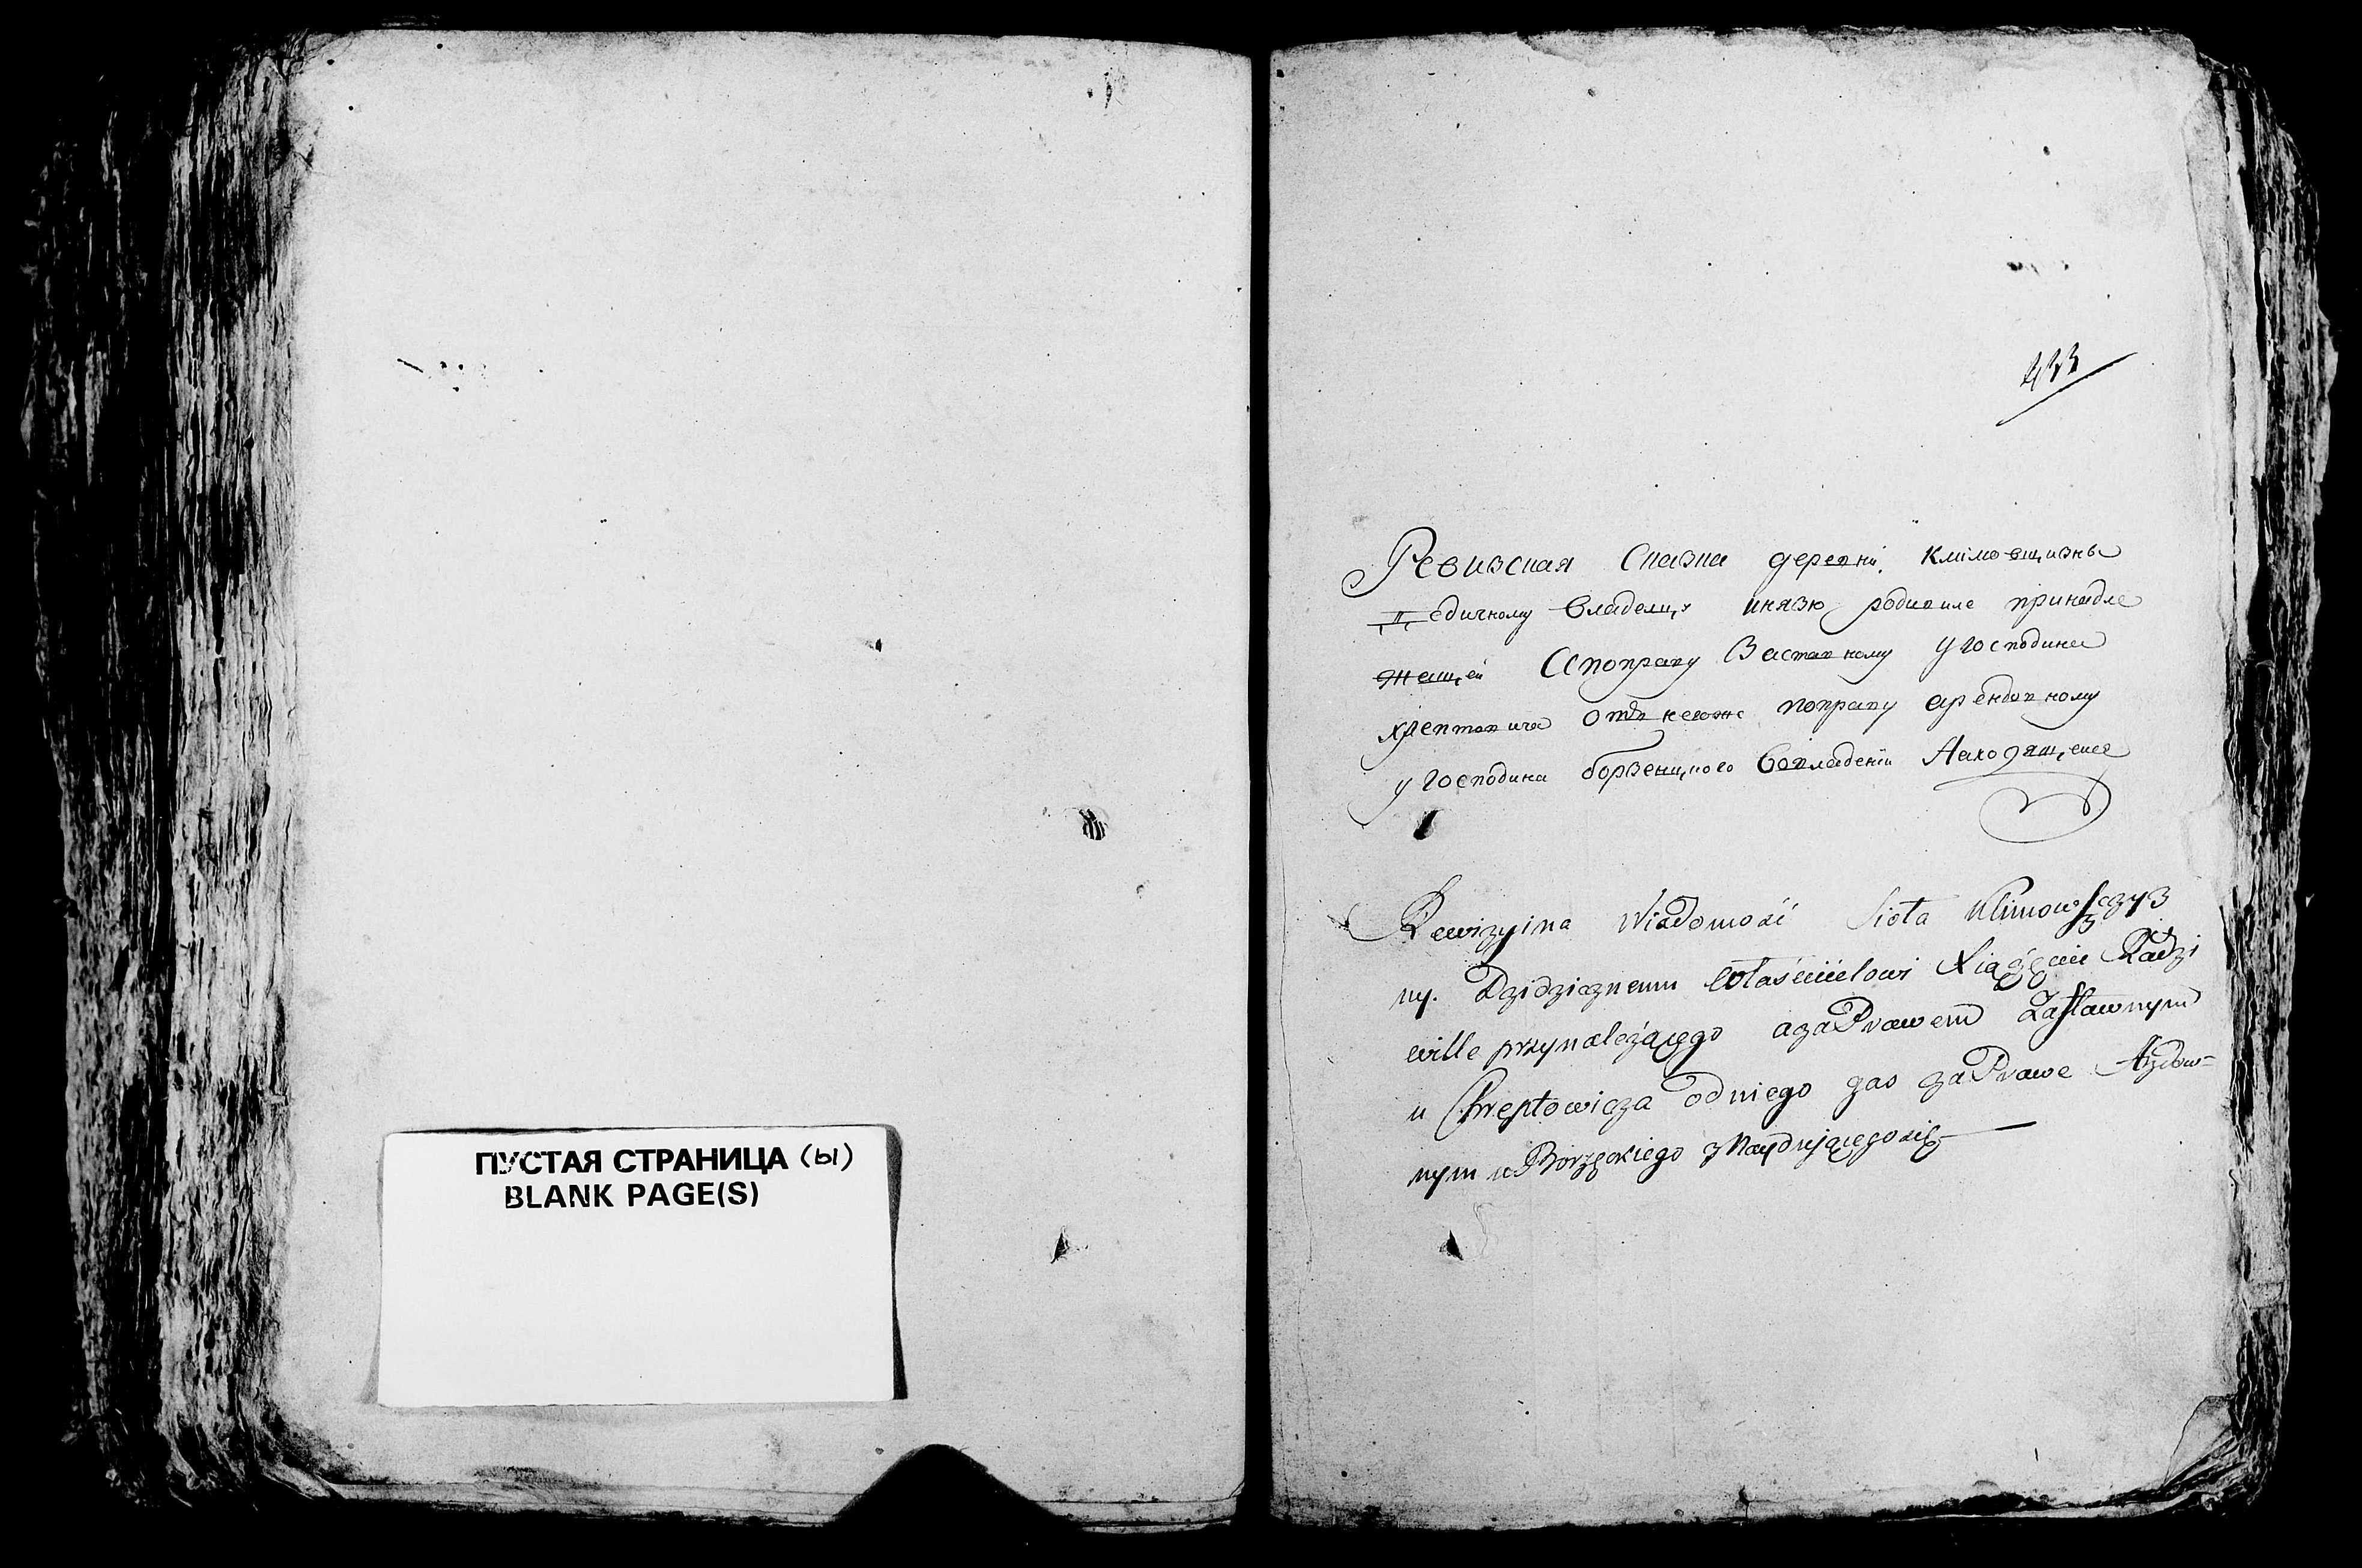 ПУСТАЯ СТРАНИЦА (ы)
BLANK PAGE(S)
433
Ревизская Сказка деревни Климовщизны
едичному Владелцу князю родивиле принадле
жащей Апоправу Заставному у господина
хрептовича отнегоже поправу арендовному
у господина борженцкого вовладении Находящеися
Rewizyina Wiadomość Sioła Klimowsczyz
ny. Dzidzicznemu Własciicielowi Xiązęciu Radzi
wille przynależącego azaPrawem Zastawnym
u Chreptowicza odniego zas zaPrawe
nym u Borzęckiego zNaydującegosię